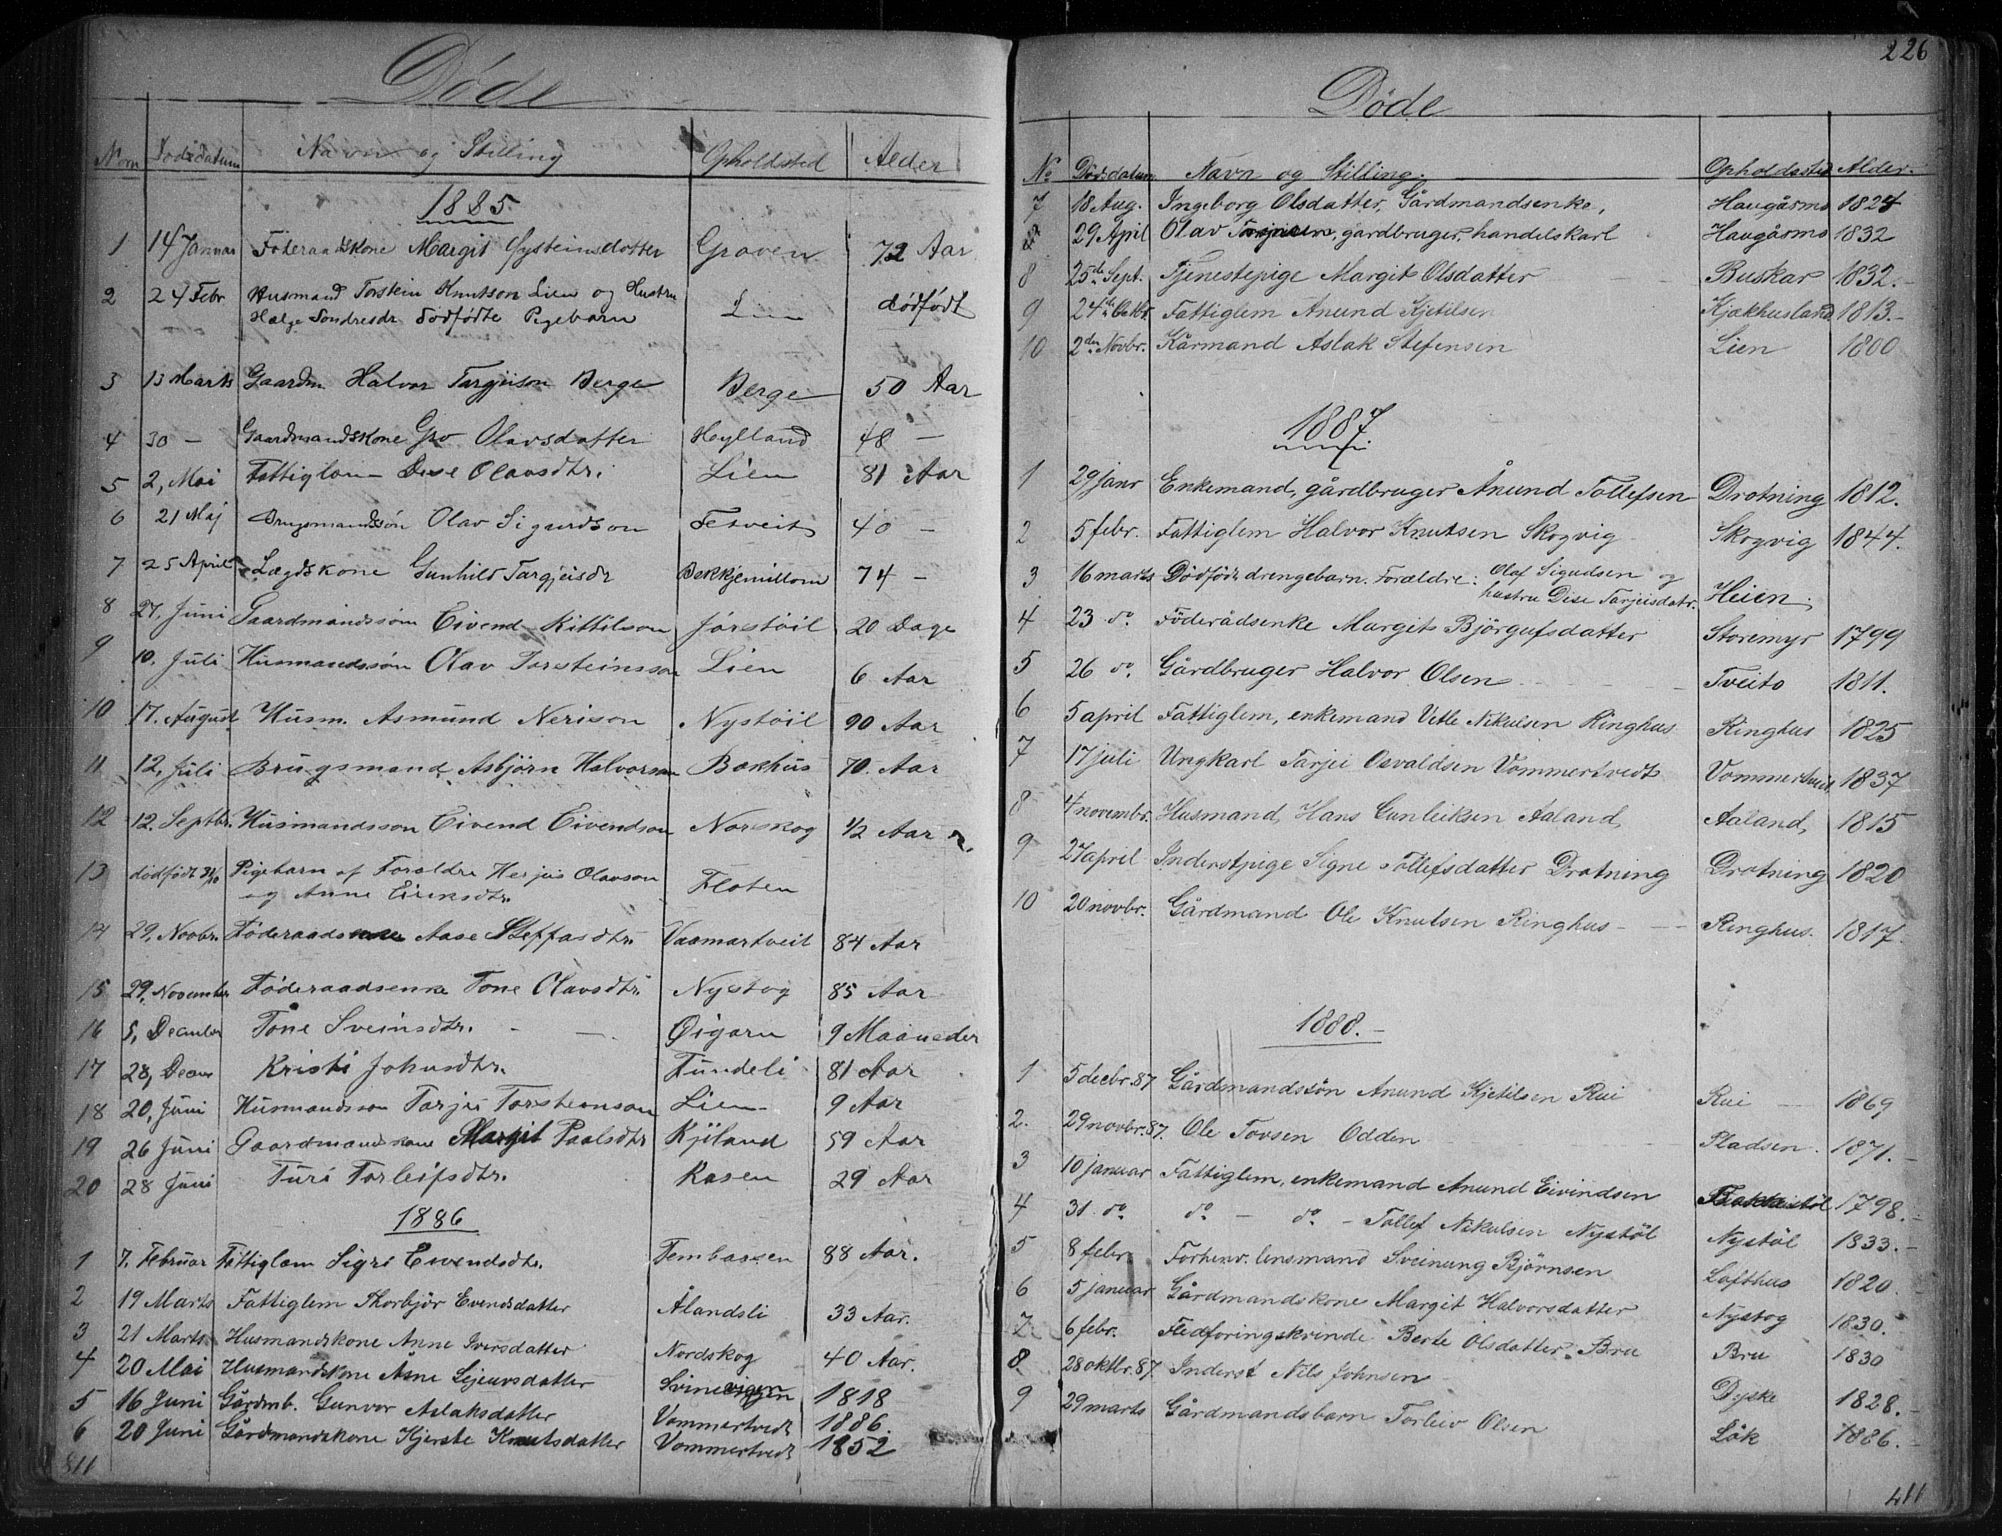 Døde
Nom Dødsdatum Navn og Stilling Opholdsted Alder
1885.
1 14 Januar Föteraadskone Margit Øysteinsdotter Groven 72 Aar
2 24 Febr Husmand Torstein Knutson Lien og Hustru Lien dödfödt
Hælge Sondresdr dödfödte Pigebarn
3 13 Marts Gaardm Halvor Targjeison Berge Berge 50 Aar
4 30 — Gaardmandskone Gro Olavsdatter Heylland 48 —
5 2, Mai Fattiglam Dise Olavsdtr. Lien 81 Aar
6 21 Maj Brugsmandssön Olav Sigurdson Tetveit 40 —
7 25 April Lægdskone Gunhild Targjeisdr Bekkjemillom 74 —
8 27, Juni Gaardmandssön Eivend Kittilson Jorstöil 20 Dage
9 10. Juli Husmandssön Olav Torsteinsson Lien 6 Aar
10 17. August Husm. Asmund Nerison Nystöil 90 Aar
11 12, Juli Brugsmand Asbjörn Halvorson Bakhus 70. Aar
12 12. Septbr. Husmandsson Eivend Eivendson Norskog 1/2 Aar
13 dödfödt 31/10 Pigebarn af Foraldre Herjus Olavson Floten
og Anne Eireksdtr.
14 29, Novbr. Föderaads Aase Steffasdtr. Vaamartveit 84 Aar
15 29, November Föderaadsenke Tone Olavsdtr. Nystog 85 Aar
16 5, December Tone Sveinsdtr. — Øigarn 9 Maaneder
17 28, Decem Kristi Johnsdtr. Tundeli 81 Aar
18 20, Juni Husmandsson Tarjei Torsteinson Lien 9 Aar
19 26 Juni Gaardmandskone Margit Paalsdtr Kjöland 59 Aar
20 28 Juni Turi Torleifsdtr. Rasen 29 Aar
1886
1 7. Februar Fattiglam Sigri Eivendsdtr. Tembassen 88 Aar.
2 19 Marts Fattiglem Thorbjör Evendsdatter Ålandsli 33 Aar.
3 21 Marts. Husmandskone Anne Iversdatter Nordskog 40 Aar.
4 20 Mai Husmandskone Åsne Svinevigen 1818
5 16 Juni Gårdmb. Gunvor Aslaksdatter Vommertvedt 1886
6 20 Juni Gårdmandskone Kjerste Knutsdatter Vommertvedt 1852
811
226
Døde
No Dødsdatum Navn og Stilling. Opholdssted Alder.
7 18 Aug. Ingeborg Olsdatter, Gårdmandsenke, Haugåsmo 1824
29 April Olav gardbruger, handelskarl Haugåsmo 1832
8 25de Sept. Tjenestepige Margit Olsdatter Buskar 1832.-
9 24de Oktbr Fattiglem Anund Kjetilsen Kjækhusland 1813.-
10 2den Novbr. Kårmand Aslak Stefensen Lien 1800
1887.
1 29 janr Enkemand, gårdbruger Ånund Tollefsen Drotning 1812.
2 5 febr. Fattiglem Halvor Knutsen Skogvig Skogvig 1844.
3 16 marts Dödfödt drengebarn. Forældre: Olaf Sigudsen og Heien.
hustru Dise Tarjeisdatr.
4 23 do. Föderådsenke Margit Björgufsdatter Storemyr 1799
5 26 do. Gårdbruger Halvor Olsen Tveito 1811.
6 5 april Fattiglem, enkemand Vetle Nikulsen Ringhus Ringhus 1825
7 17 juli Ungkarl Tarjei Osvaldsen Vommertvedt Vommertvedt 1837
8 4 novembr. Husmand, Hans Gunleiksen Aaland, Aaland, 1815
9 27 april Inderstpige Signe Tollefsdatter Drotning Drotning 1820
10 20 novbr. Gårdmand Ole Knutsen Ringhus - Ringhus. 1817.
1888.-
1 5 decbr. 87 Gårdmandssön Anund Kjetilsen Rui Rui — 1869
2. 29 novbr. 87. Ole Tovsen Odden Pladsen. 1871.-
3 10 januar Fattiglem, enkemand Anund Eivindsen 1798.-
4 31. do. do. — do. - Tollef Nikulsen Nystöl Nystöl 1833.-
5 8 febr Forhenv. lensmand Sveinung Björnsen Lofthus 1820
6 5 januar Gårdmandskone Margit Halvorsdatter Nystog 1830.
7 6 febr. Flodforingskvinde Berte Olsdatter Bru Bru 1830
8 28 oktbr. 87. Inderst Nils Johnsen Dyske 1828.-
9 29 marts Gårdmandsbarn Torleiv Olsen Låk 1886.-
411